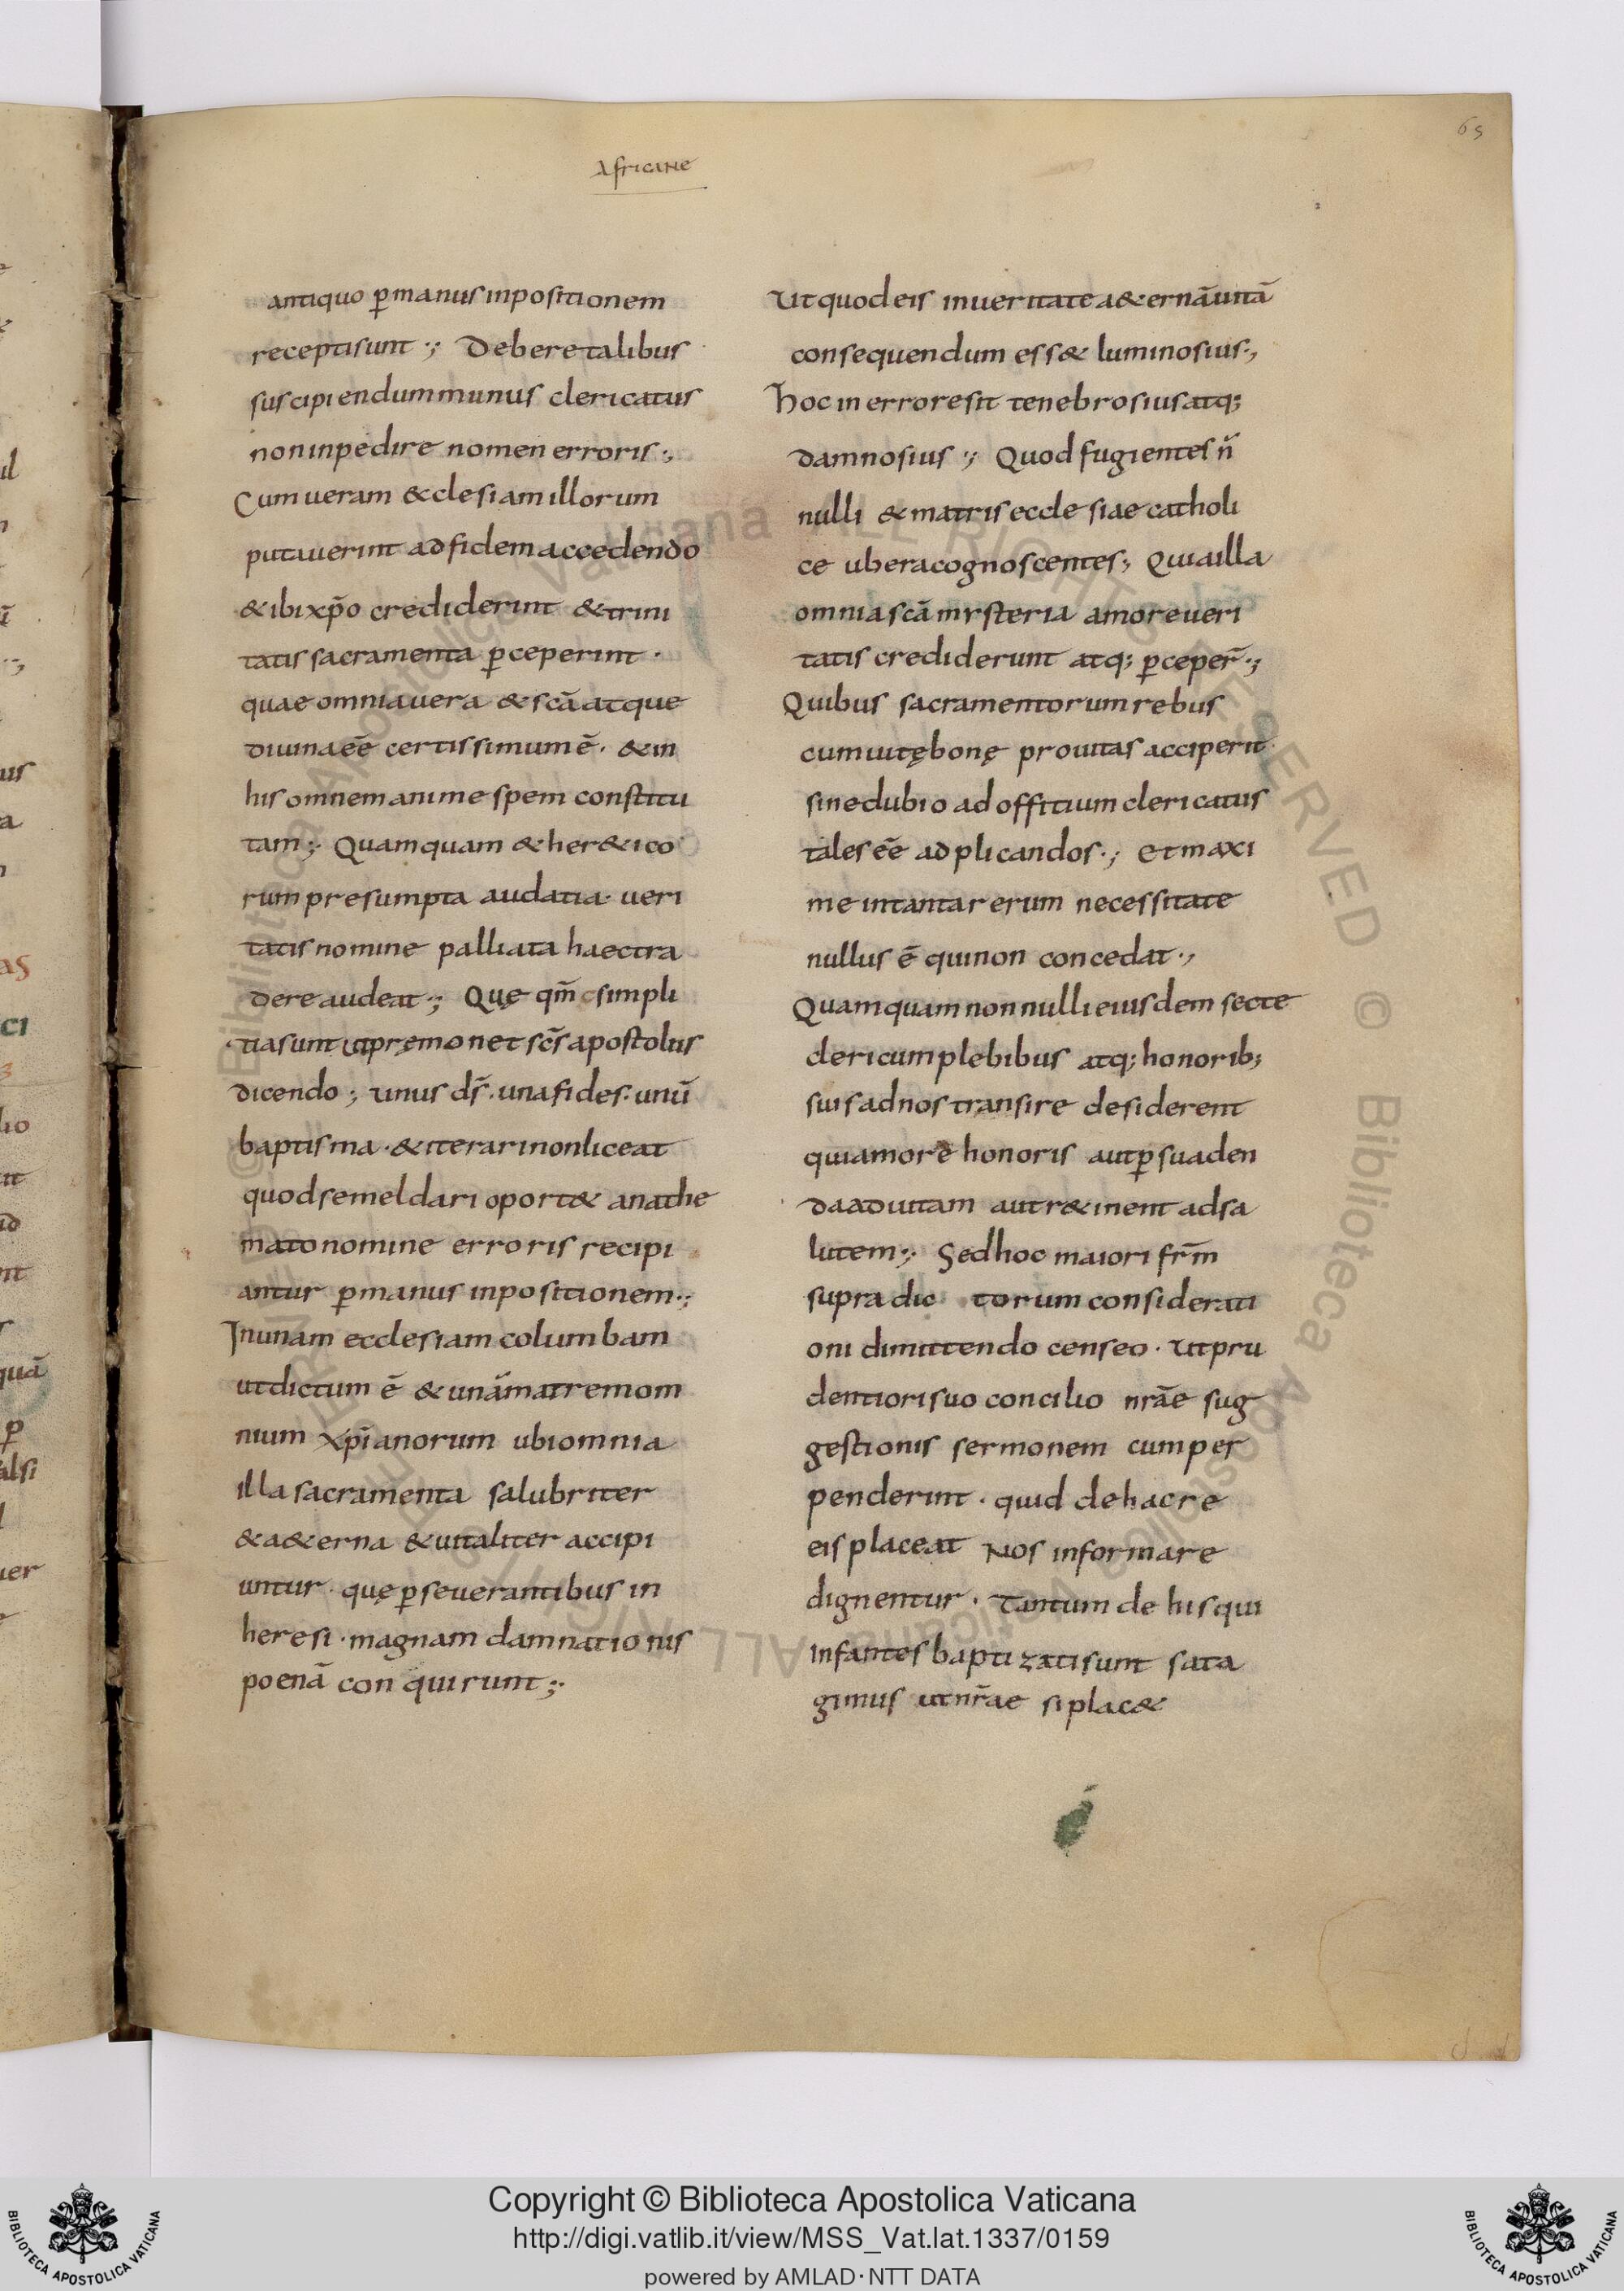 65
Africane
antiquo p̄manus inpositionem
receptisunt ·; Debere talibus
suscipiendum munus clericatus
non inpedire nomen erroris ·,
Cum ueram &clesiam illorum
putauerint ad fidem accedendo
& ibi xp̄o crediderint & trini
tatis sacramenta p̄ceperint ·
quae omnia uera & sc̄a atque
diuina eē certissimum ē · & in
his omnem anime spem constitu
tam ;· Quamquam & her&ico
rum presumpta audatia · ueri
tatis nomine palliata haec tra
dere audeat ·; Quę qm̄ simpli
tia sunt ut pręmonet sc̄s apostolus
dicendo ; unus ds̄ · una fides · unū
baptisma · & iterari non liceat
quod semel dari oport& anathe
mato nomine erroris recipi
antur p̄manus inpositionem ·;
In unam ecclesiam columbam
ut dictum ē & unā matrem om
nium xp̄ianorum ubi omnia
illa sacramenta salubriter
& a&erna & uitaliter accipi
untur · quę p̄seuerantibus in
heresi · magnam damnationis
poenā conquirunt ;·
Ut quod eis in ueritate a&ernā uitā
consequendum ess& luminosius ·,
hoc in errore sit tenebrosius atq;
damnosius ·; Quod fugientes n̄
nulli & matris ecclesiae catholi
ce ubera cognoscentes ·; Quia illa
omnia sc̄a mysteria amore ueri
tatis crediderunt atq; p̄ceper̄ ·;
Quibus sacramentorum rebus
cum uitę bonę prouitas acciperit
sine dubio ad offitium clericatus
tales eē adplicandos ·; Et maxi
me in tanta rerum necessitate
nullus ē qui non concedat ·,
Quamquam nonnulli eiusdem secte
clericum plebibus atq; honorib;
suis ad nos transire desiderent
qui amore honoris aut p̄suaden
da ad uitam aut r&inent ad sa
lutem ;· Sed hoc maiori frm̄
supra dic torum considerati
oni dimittendo censeo · Ut pru
dentiori suo concilio nrāe sug
gestionis sermonem cum per
penderint · quid de hac re
eis placeat Nos informare
dignentur · Tantum de his qui
infantes baptizati sunt sata
gimus ut nrāe si plac&
Copyright © Biblioteca Apostolica Vaticana
http://digi.vatlib.it/view/MSS_Vat.lat.1337/0159
powered by AMLAD · NTT DATA
BIBLIOTECA APOSTOLICA VATICANA
BIBLIOTECA APOSTOLICA VATICANA